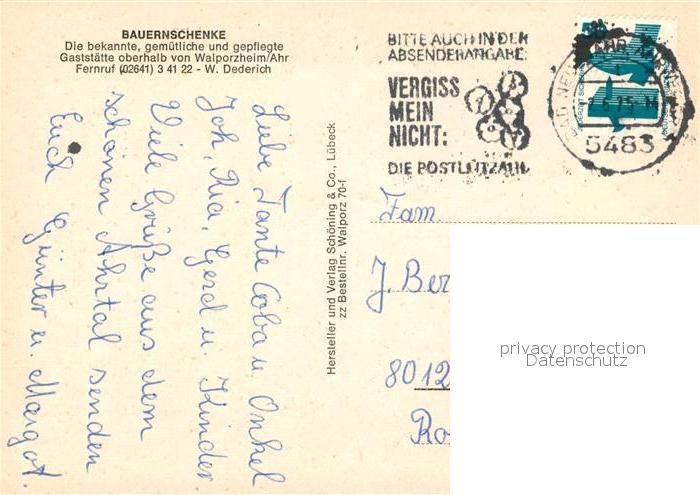 BAUERNSCHENKE
Die bekannte, gemütliche und gepflegte
Gaststätte oberhalb von Walporzheim/Ahr
Fernruf (02641) 3 41 22 - W. Dederich
Liebe Tante Coba u. Onkel
Joh, Ria, Gerd u. Kinder.
Viele Grüße aus dem
schönen Ahrtal senden
Euch Günter u. Margot.
Hersteller und Verlag Schöning & Co., Lübeck
zz Bestellnr. Walporz 70-f
BITTE AUCH IN DER
ABSENDERANGABE:
VERGISS
MEIN
NICHT:
DIE POSTLEITZAHL
5483
Fam
J. Ber
8012
Ro
privacy protection
Datenschutz